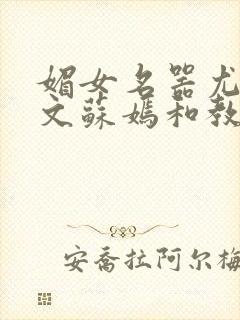 媚女名器尤
文蘇媽和教
安喬拉阿尔梅